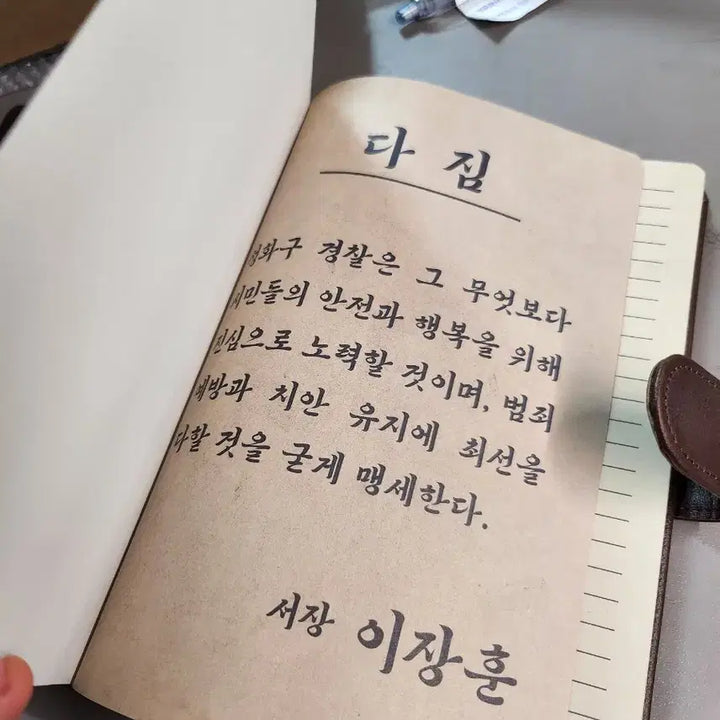 다 짐
경찰은 그 무엇보다
시민들의 안전과 행복을 위해
진심으로 노력할 것이며, 범죄
예방과 치안 유지에 최선을
다할 것을 굳게 맹세한다.
서장 이장훈